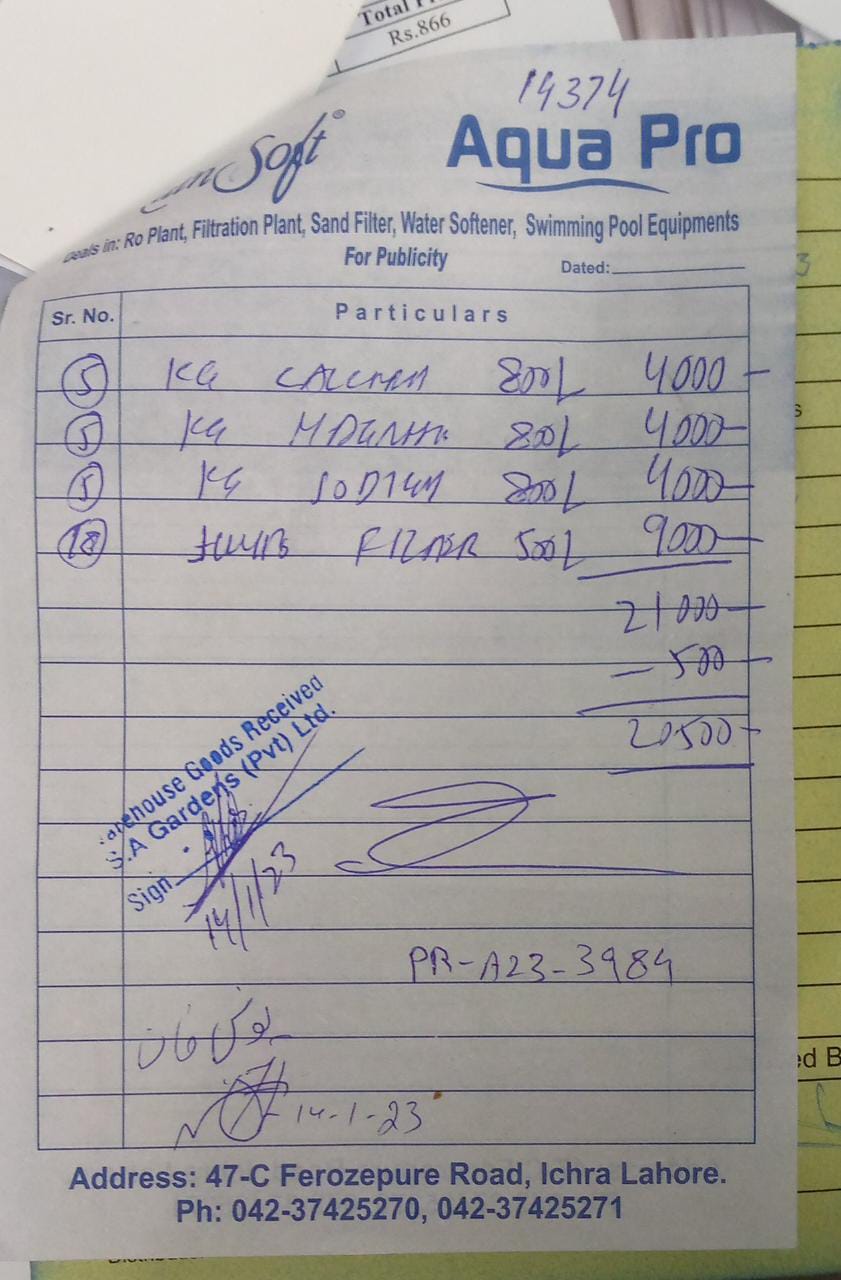 Total
Rs.866
14374
Soft®
Aqua Pro
Deals in: Ro Plant, Filtration Plant, Sand Filter, Water Softener, Swimming Pool Equipments
For Publicity
Dated:
Sr. No. Particulars
5 KG 800/ 4000
5 KG 800/ 4000
5 KG SODIUM 800/ 4000
18 FILTER 500/ 9000
21000
- 500
20500
Goods Received
S.A Gardens (Pvt) Ltd.
Sign
14/1/23
PR-A23-3984
14-1-23
Address: 47-C Ferozepure Road, Ichra Lahore.
Ph: 042-37425270, 042-37425271